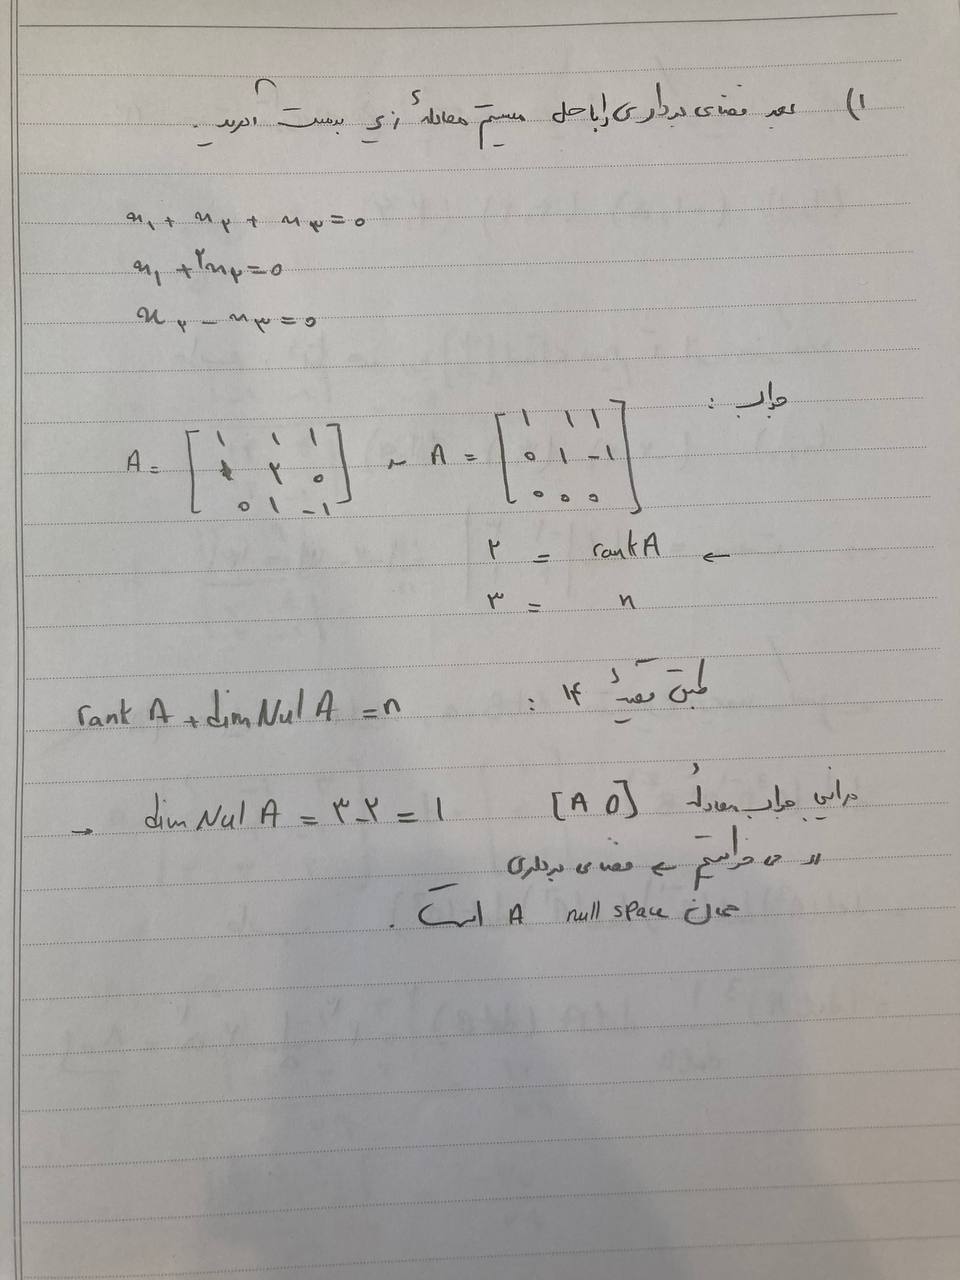 ۱) بعد فضای برداری را با حل سیستم معادلهٔ زیر بدست آورید.
x₁ + x₂ + x₃ = 0
x₁ + ۲x₂ = 0
x₂ - x₃ = 0
جواب :
A = [1 1 1; 1 ۲ 0; 0 1 -1] ~ A = [1 1 1; 0 1 -1; 0 0 0]
۲ = rank A ←
۳ = n
طبق قضیهٔ ۱۴ : rank A + dim Nul A = n
→ dim Nul A = ۳-۲ = 1
در این جواب معادلهٔ [A 0]
را می خواستیم ← فضای برداری
همان null space A است.